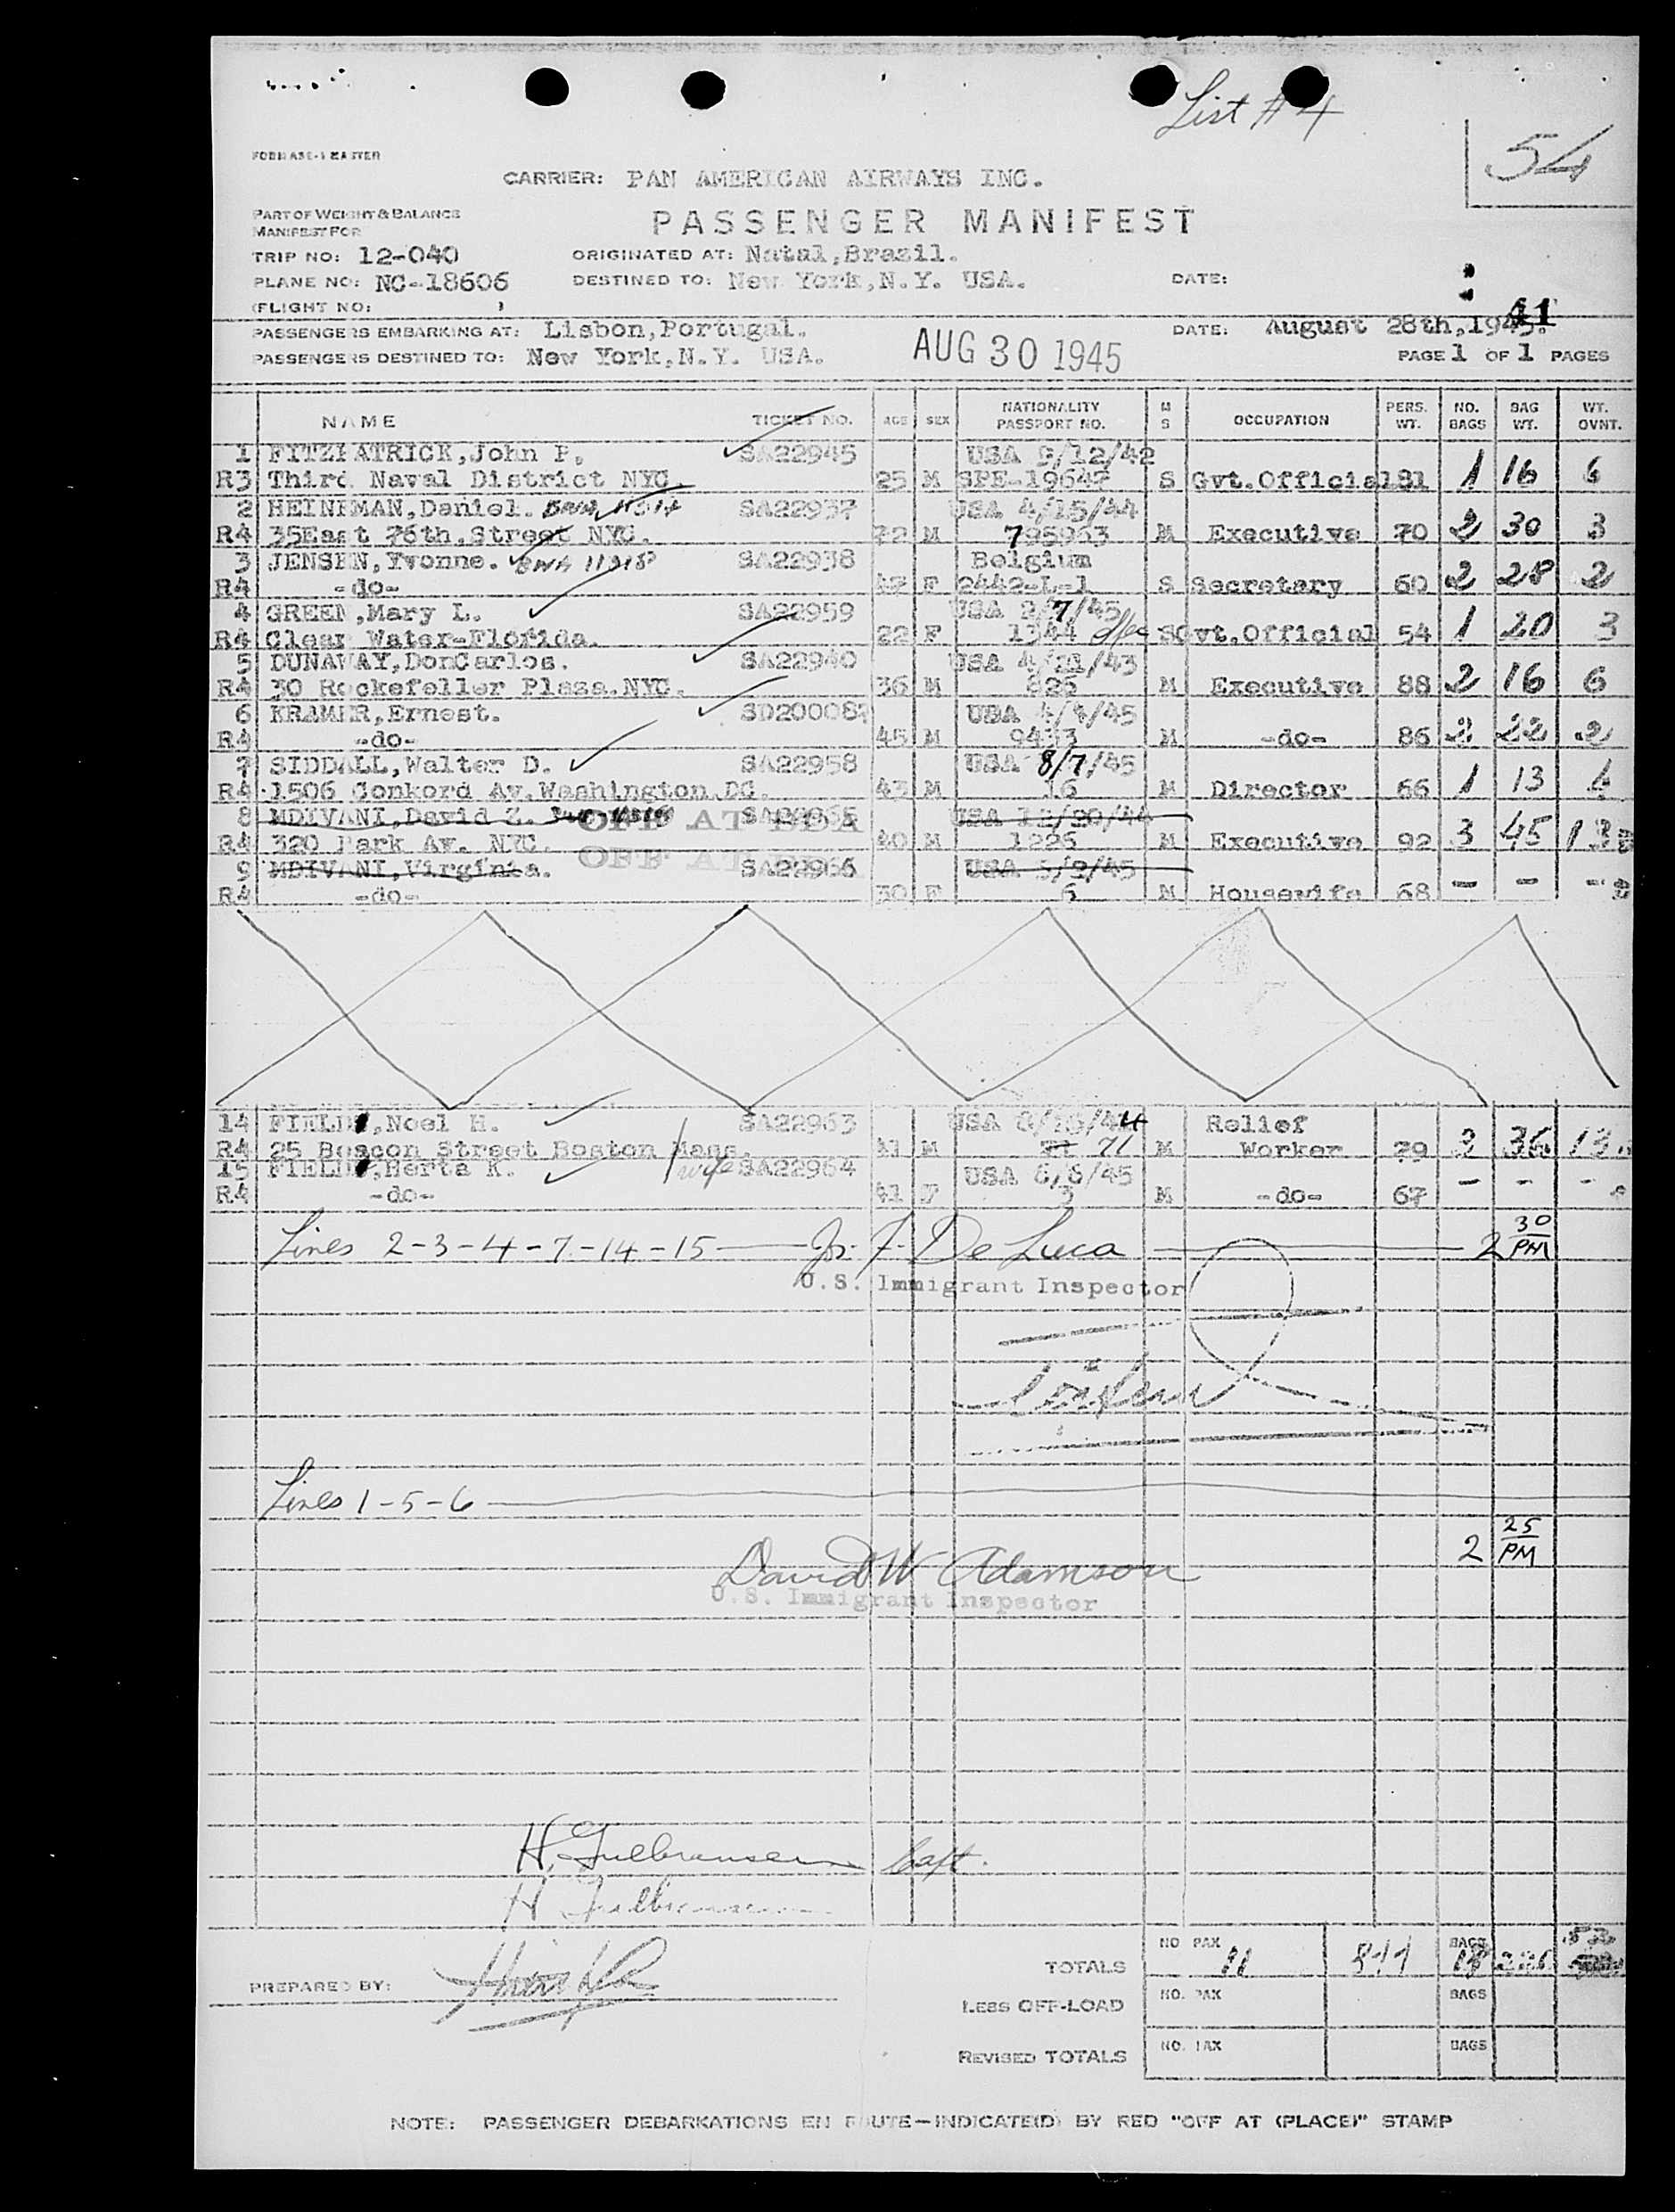 List # 4
54
FORM ASE-1 MASTER
CARRIER: PAN AMERICAN AIRWAYS INC.
PART OF WEIGHT & BALANCE
MANIFEST FOR
PASSENGER MANIFEST
TRIP NO: 12-040 ORIGINATED AT: Natal,Brazil.
PLANE NO: NC-18606 DESTINED TO: New York,N.Y. USA. DATE:
(FLIGHT NO: )
PASSENGERS EMBARKING AT: Lisbon,Portugal. DATE: August 28th,1945.
41
PASSENGERS DESTINED TO: New York,N.Y. USA. AUG 30 1945 PAGE 1 OF 1 PAGES
NAME TICKET NO. AGE SEX NATIONALITY PASSPORT NO. M S OCCUPATION PERS. WT. NO. BAGS BAG WT. WT. OVNT.
1 FITZPATRICK,John P. SA22945 USA 9/12/42
R3 Third Naval District NYC. 25 M SPE-19647 S Gvt.Official 81 1 16 6
2 HEINEMAN,Daniel. SA22937 USA 4/15/44
R4 35East 76th.Street NYC. 72 M 795963 M Executive 70 2 30 3
3 JENSEN,Yvonne. SA22938 Belgium
R4 -do- 47 F 2442-L-1 S Secretary 60 2 28 2
4 GREEN,Mary L. SA22959 USA 2/7/45
R4 Clear Water-Florida. 22 F 1344 S Gvt.Official 54 1 20 3
5 DUNAWAY,DonCarlos. SA22940 USA 4/21/43
R4 30 Rockefeller Plaza.NYC. 36 M 826 M Executive 88 2 16 6
6 KRAMER,Ernest. SD200087 USA 4/4/45
R4 -do- 45 M 9433 M -do- 86 2 22 2
7 SIDDALL,Walter D. SA22958 USA 8/7/45
R4 1506 Conkord Av.Washington.DC. 43 M 16 M Director 66 1 13
8 MDIVANI,David Z. SA22965 USA 12/20/44
OFF AT BDA
R4 320 Park Av. NYC. 40 M 1226 M Executive 92 3 45 13
OFF AT
9 MDIVANI,Virginia. SA22966 USA 5/2/45
R4 -do- 30 F 6 M Housewife 68 - - -
14 FIELD,Noel H. SA22963 USA Relief
R4 25 Beacon Street Boston Mass. 41 M 71 M Worker 79 3 36 13
15 FIELD,Herta K. wife SA22964 USA 6/8/45
R4 -do- 41 F 3 M -do- 67 - - -
Lines 2-3-4-7-14-15 Jr. F. De Luca 2 30 PM
U.S. Immigrant Inspector
Lines 1-5-6
2 25 PM
David W Adamson
U.S. Immigrant Inspector
H. Gulbransen Capt.
H Gulbransen
PREPARED BY:
TOTALS NO PAX 11 811 BAGS 18
LESS OFF-LOAD NO. PAX BAGS
REVISED TOTALS NO. PAX BAGS
NOTE: PASSENGER DEBARKATIONS EN ROUTE—INDICATE(D) BY RED "OFF AT (PLACE)" STAMP